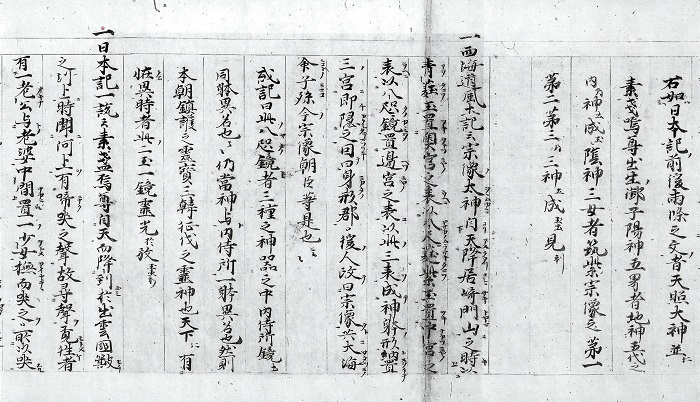 右如日本記前後兩條之文者天照大神並ニ
素戔嗚尊出生御子陽神五男者地神五代之
内ノ神ト成ル陰神三女者筑紫宗像之第一
第二第三ノ三神ト成ルト見タリ
一西海道風土記云宗像大神自天降居崎門山之時以
青蕤玉置奥宮之表以八尺蕤紫玉置中宮之
表以八咫鏡置邊宮之表以此三表成神躰形納置
三宮即隱之因曰身形郡後人改曰宗像其大海
命子孫今宗像朝臣等是也云云
或記曰此八咫鏡者三種之神器之中内侍所鏡ト
同躰異名也云云仍當神与内侍所一躰異名也然則
本朝鎮護之靈寳三韓征伐之靈神也天下ニ有
恠異時者此二玉一鏡靈光於放
一日本記一説云素盞烏尊自天而降到於出雲國簸
之川上時聞河上有啼哭之聲故尋聲覓往者
有一老公与老婆中間置一少女撫而哭之